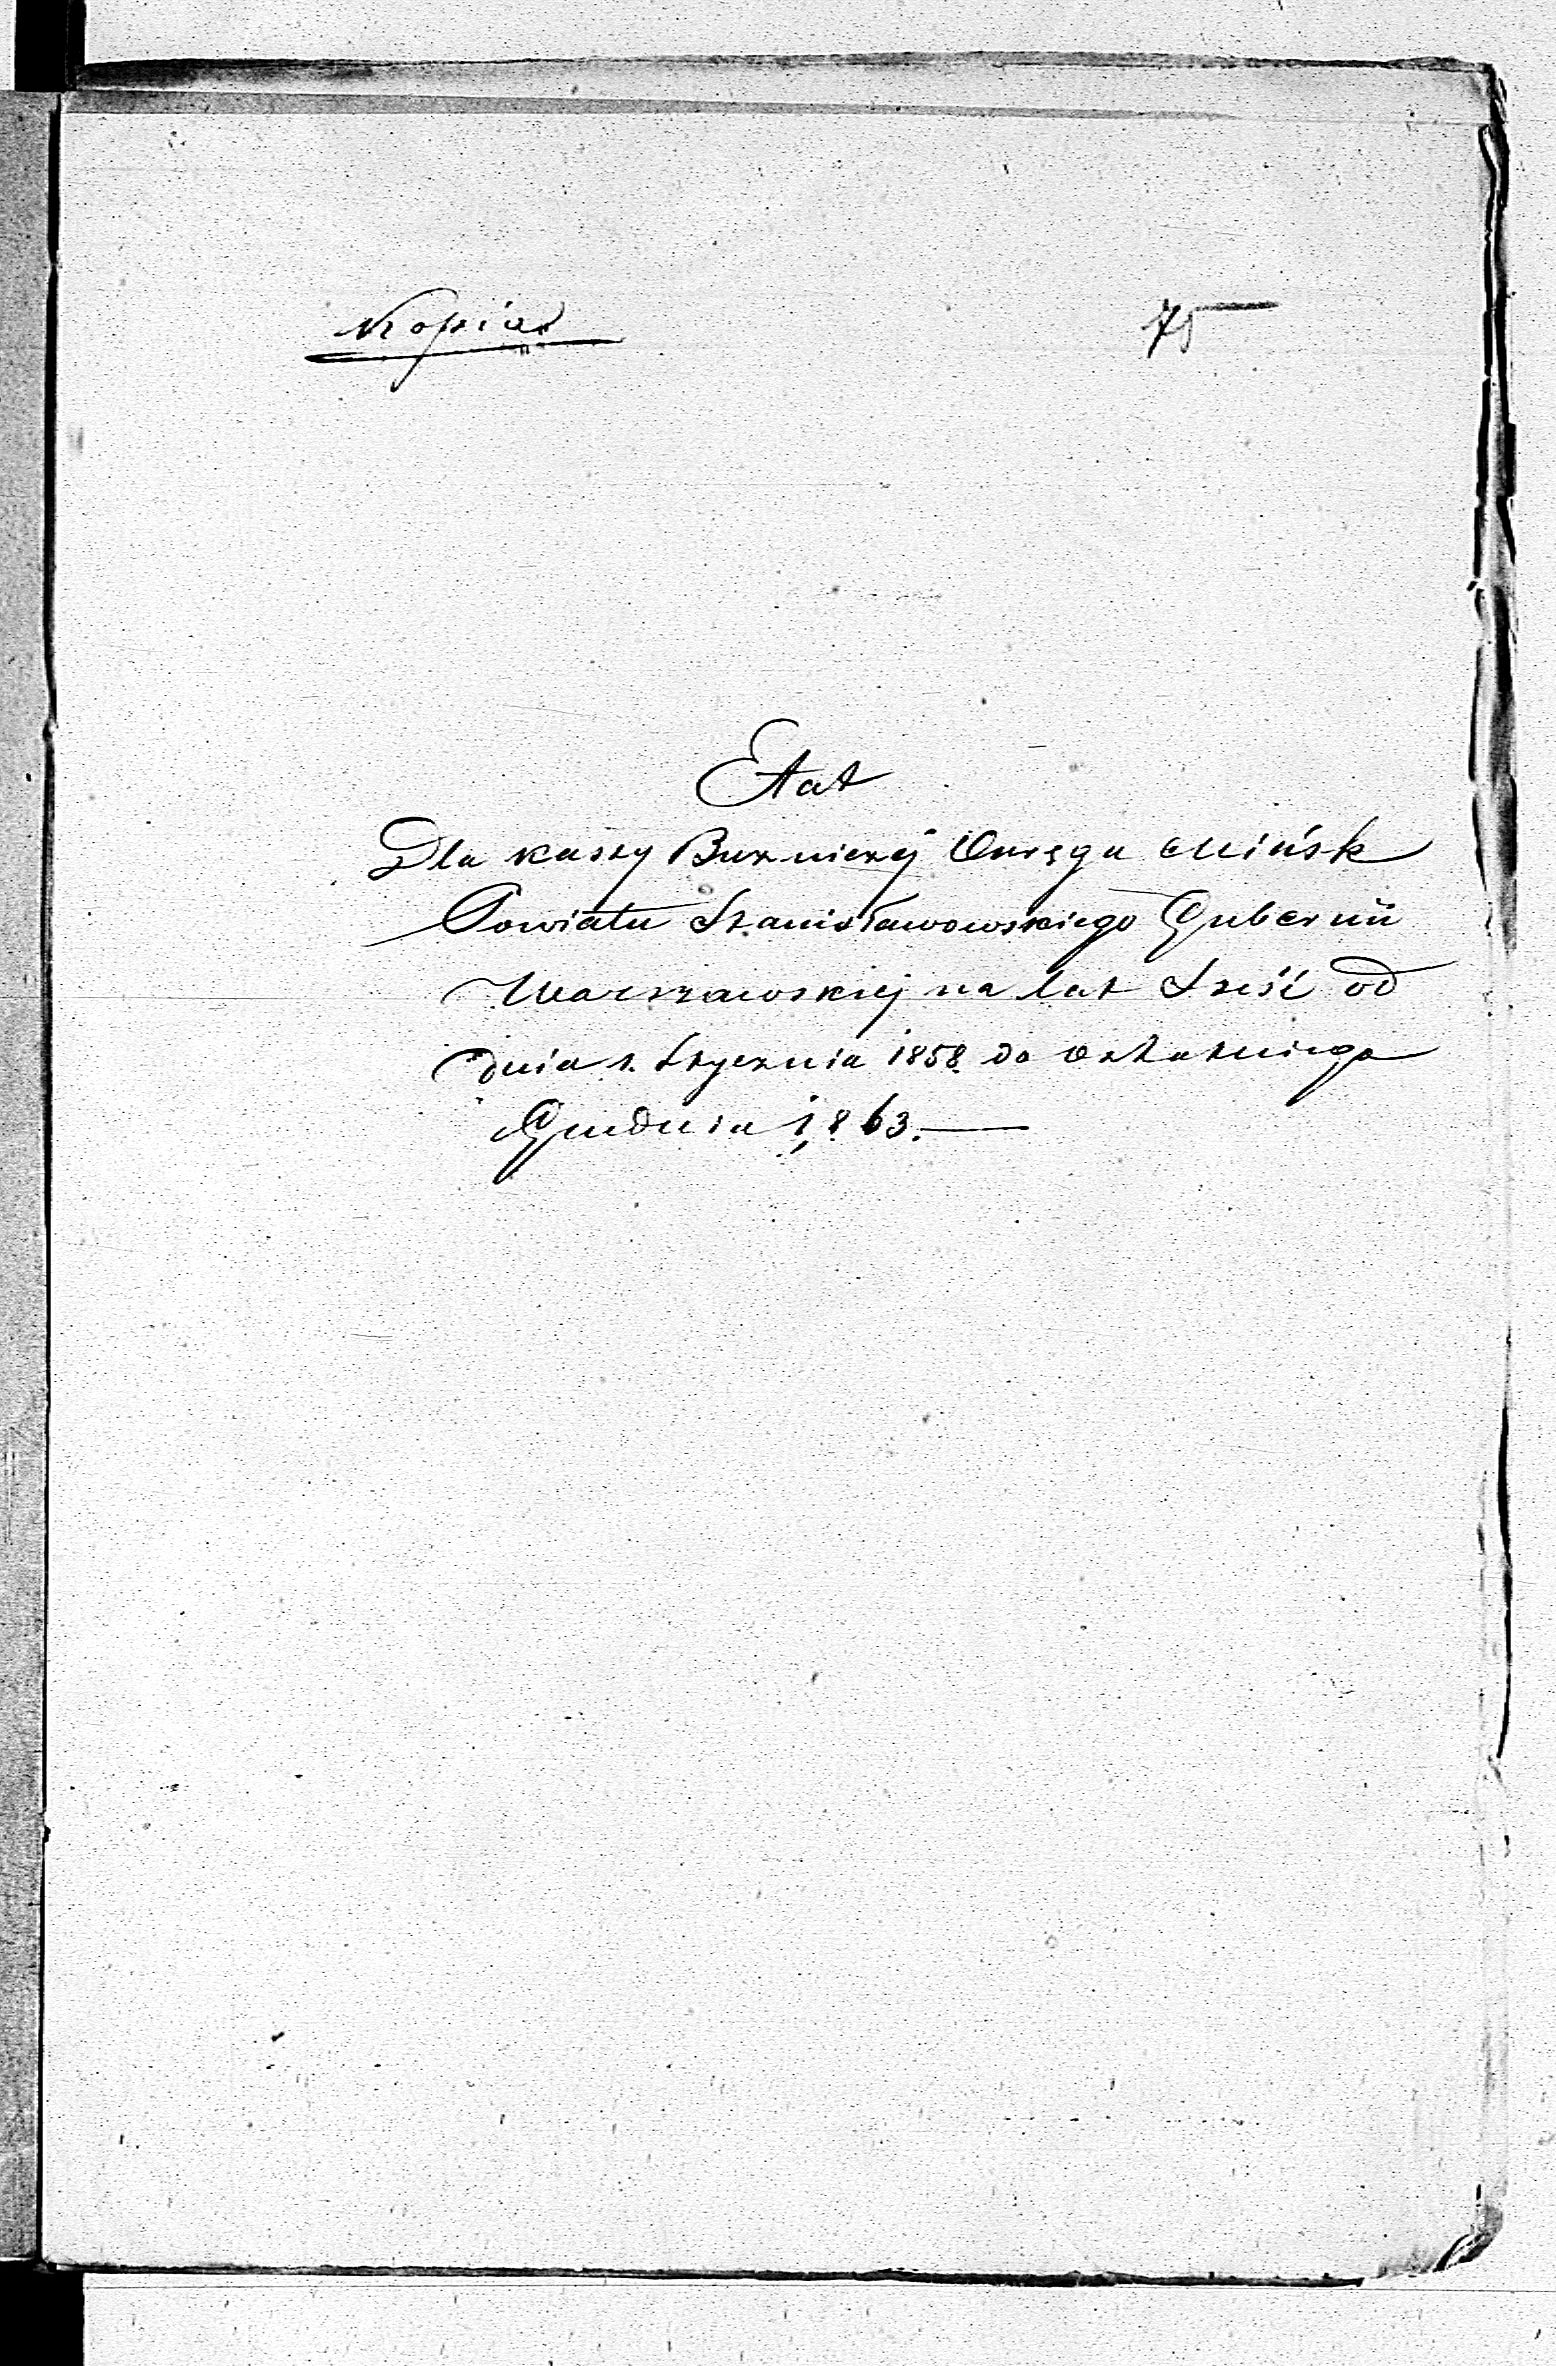 Kopia
75
Etat
Dla kassy Bużniczej Okręgu Mińsk
Powiatu Stanisławowskiego Gubernii
Warszawskiej na lat Sześć od
dnia 1. Stycznia 1858 do Ostatniego
Grudnia 1863.